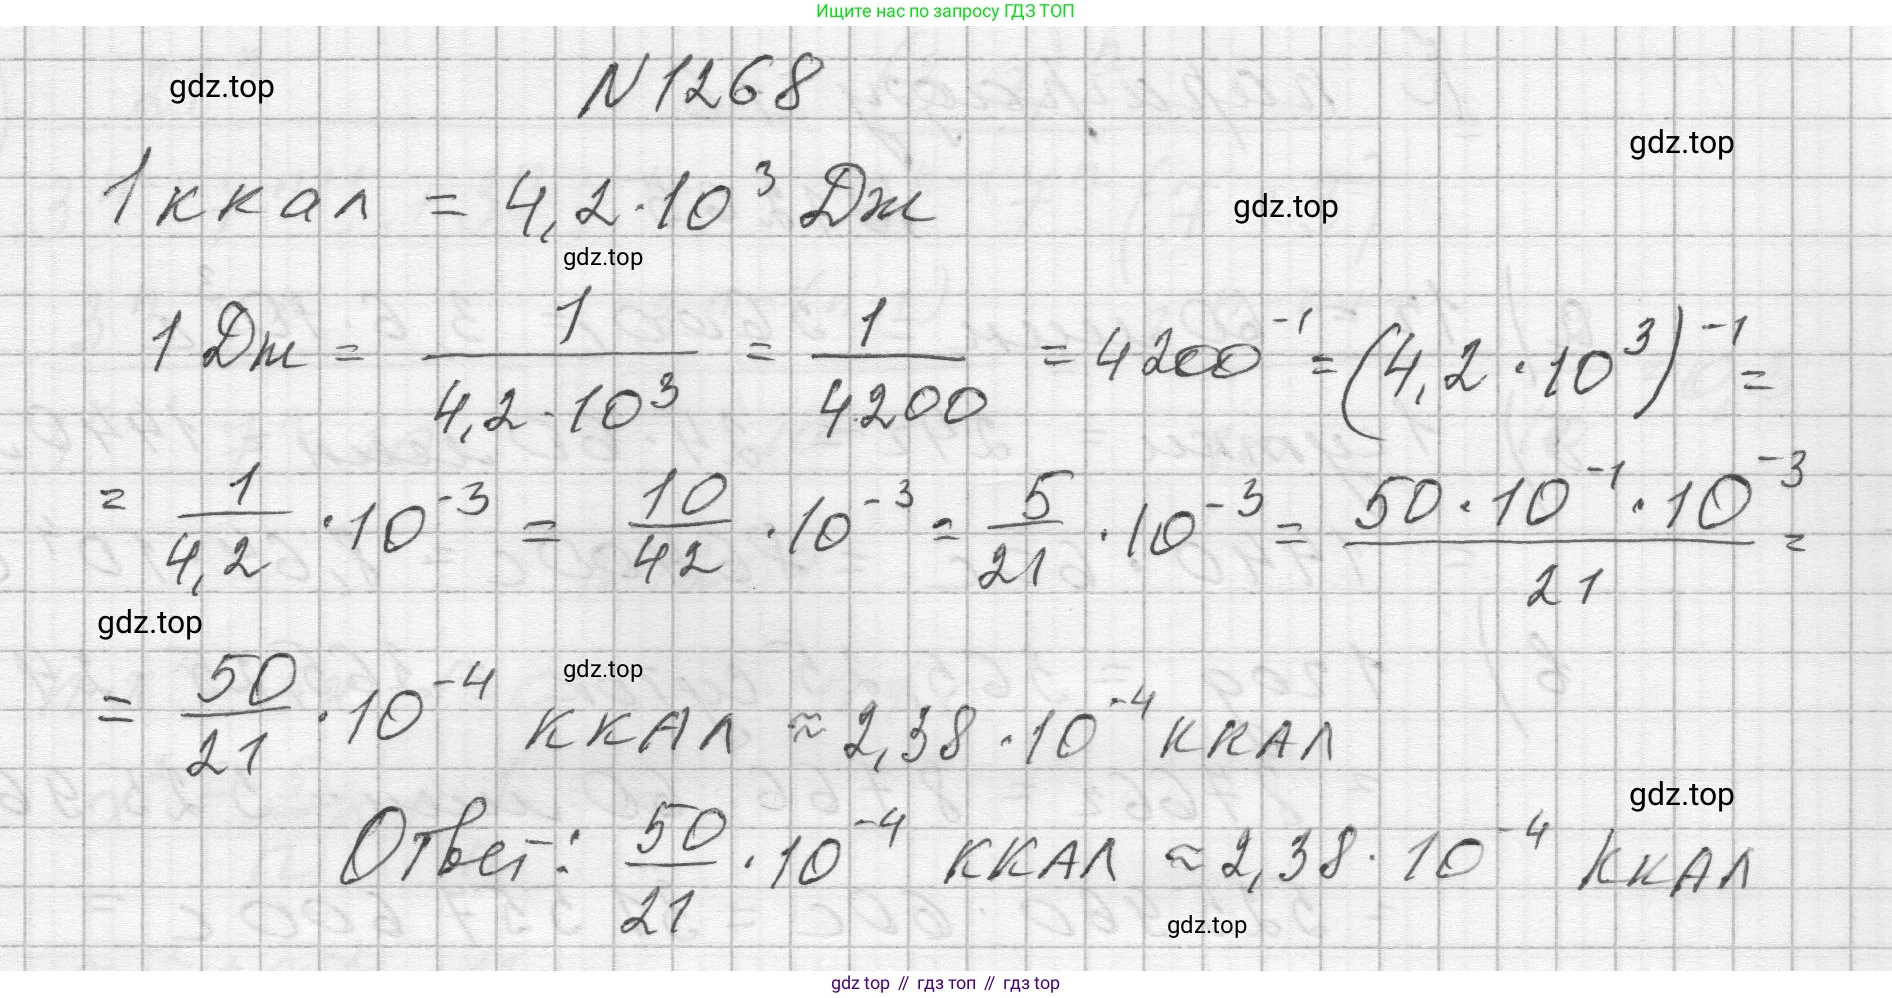 Ищите нас по запросу ГДЗ ТОП
gdz.top
N1268
gdz.top
1 ккал = 4,2 · 10³ Дж
gdz.top
gdz.top
1 Дж = 1/(4,2 · 10³) = 1/4200 = 4200⁻¹ = (4,2 · 10³)⁻¹ =
= 1/4,2 · 10⁻³ = 10/42 · 10⁻³ = 5/21 · 10⁻³ = (50 · 10⁻¹ · 10⁻³)/21 =
gdz.top
gdz.top
= 50/21 · 10⁻⁴ ккал ≈ 2,38 · 10⁻⁴ ккал
gdz.top
Ответ: 50/21 · 10⁻⁴ ккал ≈ 2,38 · 10⁻⁴ ккал
gdz.top
gdz top // гдз топ // гдз top